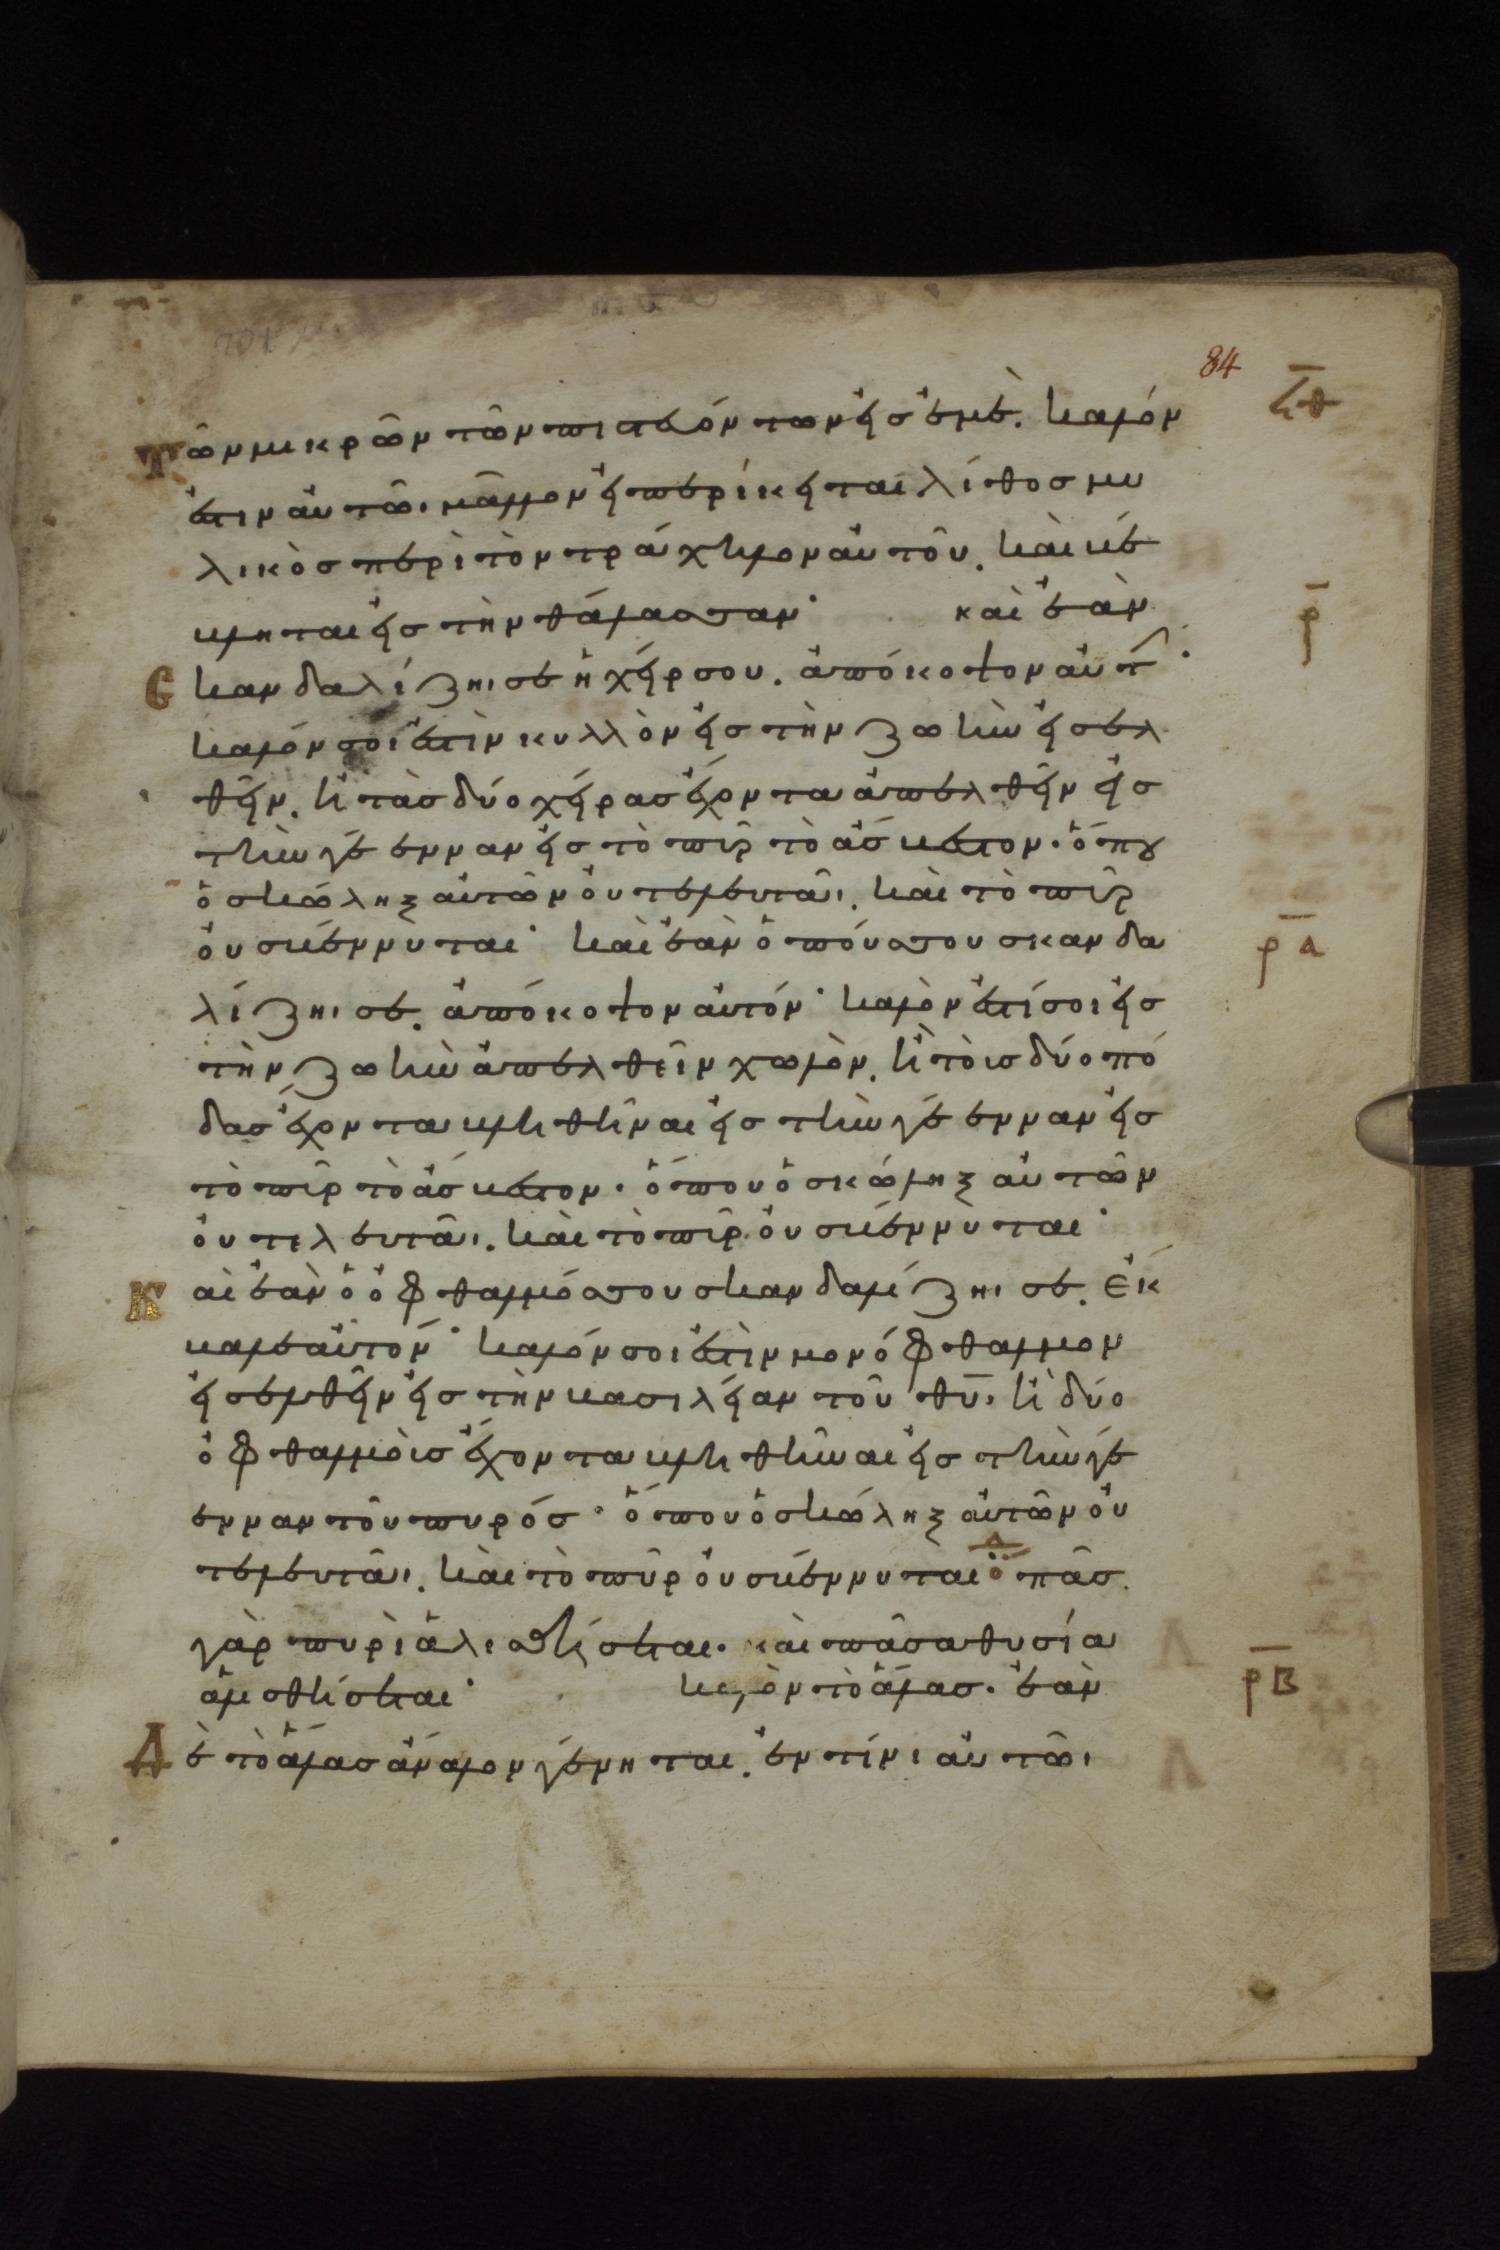 84
τῶν μικρῶν τῶν πιστευόντων εἰς ἐμὲ. καλόν ϟθ
ἐστιν αὐτῶι μᾶλλον εἰ περίκειται λίθος μυ
λικὸς περὶ τὸν τράχηλον αὐτοῦ. καὶ βέ
βληται εἰς τὴν θάλασσαν· καὶ ἐὰν ρ
σκανδαλίζηι σε ἡ χείρ σου. ἀπόκοψον αὐτ·
καλόν σοι ἐστὶν κυλλὸν εἰς τὴν ζωὴν εἰσελ
θεῖν. ἢ τὰς δύο χεῖρας ἔχοντα ἀπελθεῖν εἰς
τὴν γέενναν εἰς τὸ πῦρ τὸ ἄσβεστον· ὅπου
ὁ σκώληξ αὐτῶν οὐ τελευτᾶι. καὶ τὸ πῦρ
οὐ σβέννυται· καὶ ἐὰν ὁ πούς σου σκανδα ρα
λίζηι σε. ἀπόκοψον αὐτόν· καλὸν ἐστί σοι εἰς
τὴν ζωὴν ἀπελθεῖν χωλὸν. ἢ τοὺς δύο πό
δας ἔχοντα βληθῆναι εἰς τὴν γέενναν εἰς
τὸ πῦρ τὸ ἄσβεστον· ὅπου ὁ σκώληξ αὐτῶν
οὐ τελευτᾶι. καὶ τὸ πῦρ οὐ σβέννυται·
Καὶ ἐὰν ὁ ὀφθαλμός σου σκανδαλίζηι σε. ἔκ
βαλε αὐτόν· καλόν σοι ἐστὶν μονόφθαλμον
εἰσελθεῖν εἰς τὴν βασιλείαν τοῦ θυ. ἢ δύο
ὀφθαλμοὺς ἔχοντα βληθῆναι εἰς τὴν γέ
ενναν τοῦ πυρός· ὅπου ὁ σκώληξ αὐτῶν οὐ
τελευτᾶι. καὶ τὸ πῦρ οὐ σβέννυται πᾶς
γὰρ πυρὶ ἁλισθήσεται. καὶ πᾶσα θυσία
ἁλισθήσεται· καλὸν τὸ ἅλας. ἐὰν ρβ
Δὲ τὸ ἅλας ἄναλον γένηται. ἐν τίνι αὐτῶι